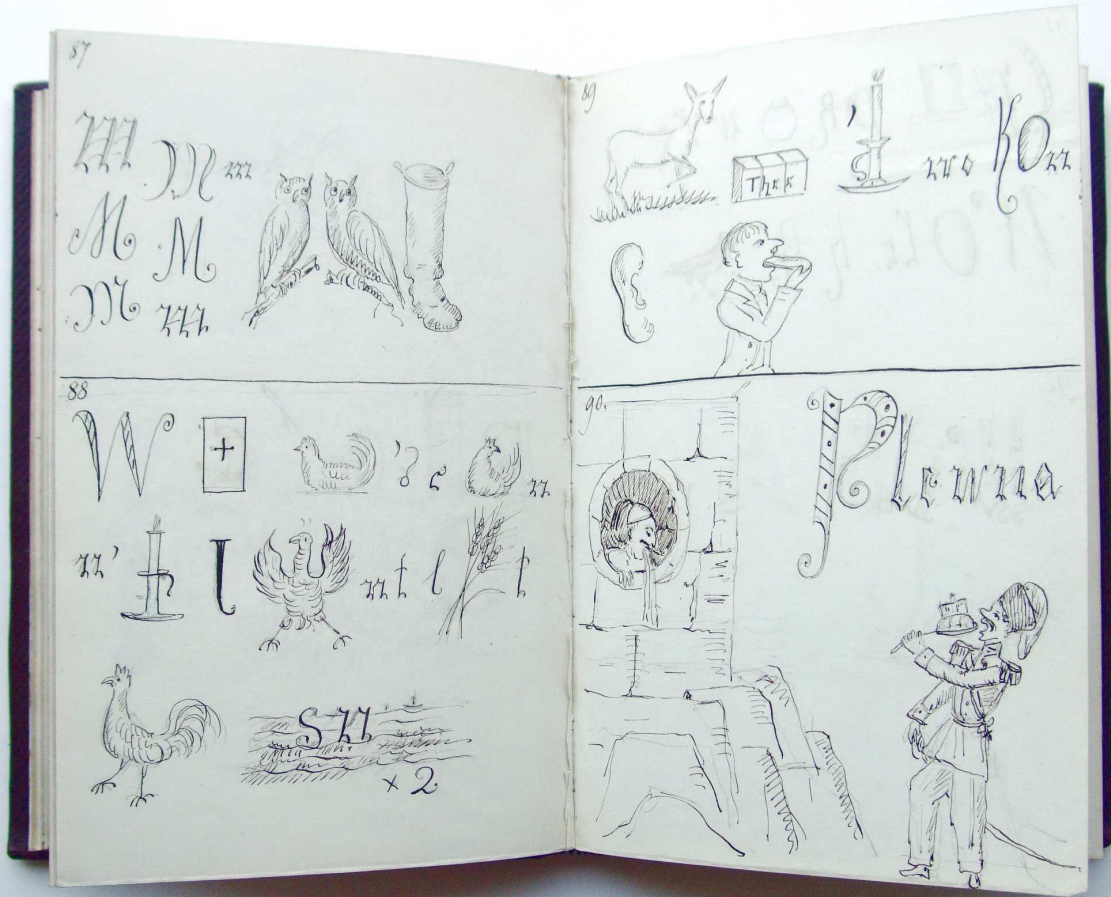 87
m
M m
M
M
M
m
88
W + n
n' l nt l t
S n
× 2
89
Thee ' no KOn
90.
Plewna